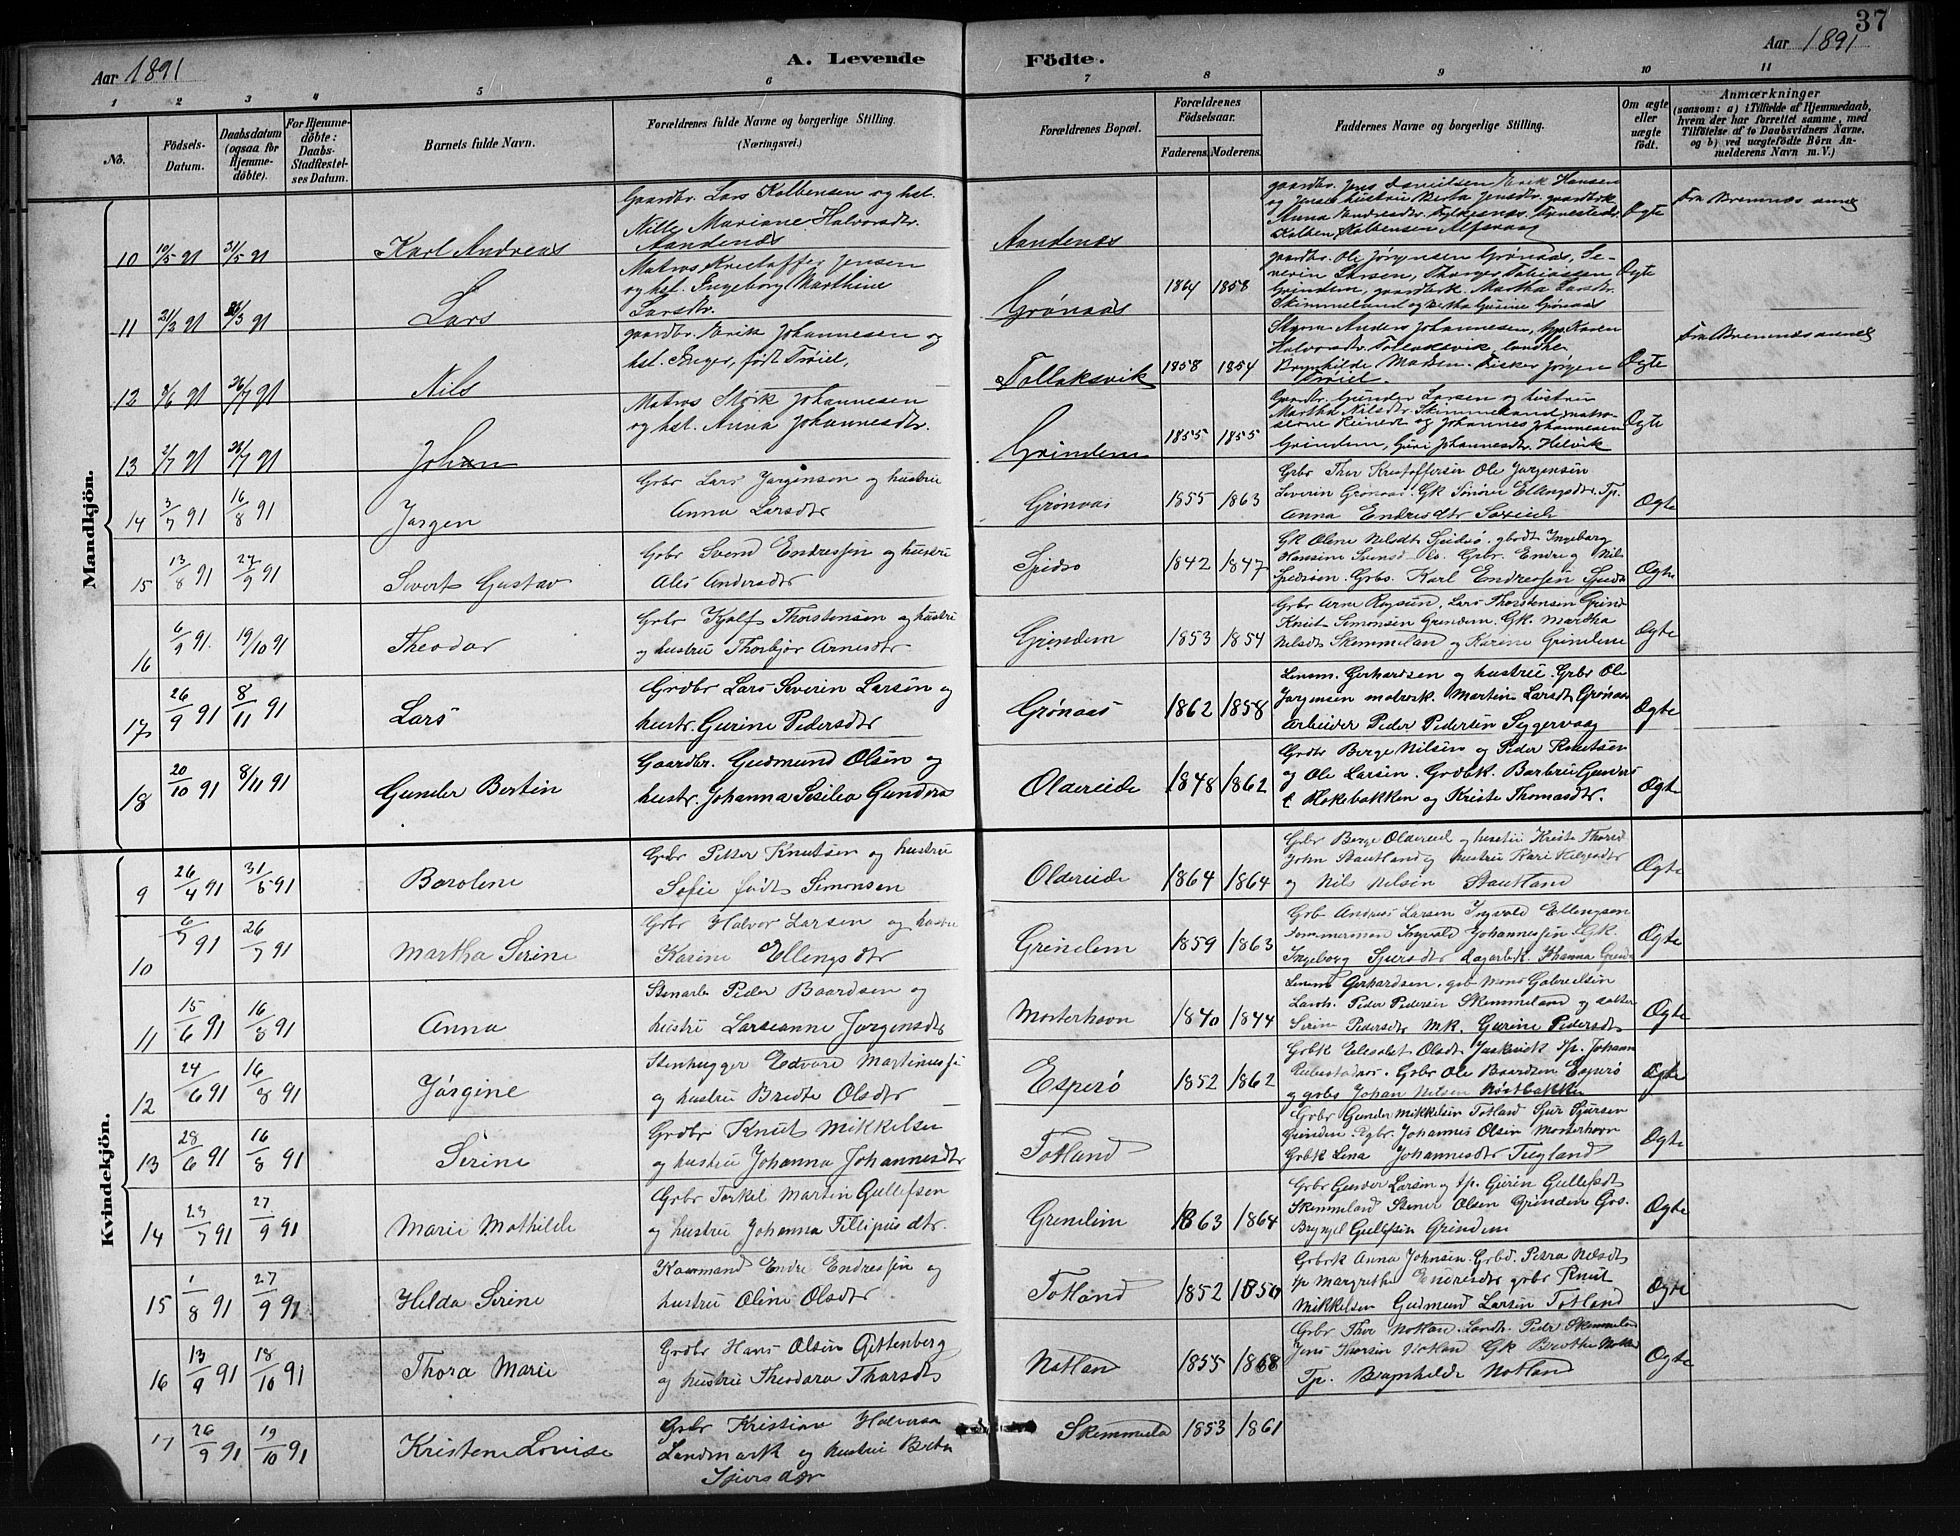 37
Aar 1891
A. Levende
Födte.
Aar 1891
1 2 3 4 5 6 7 8 9 10 11
No.
Födsels-Datum.
Daabsdatum (ogsaa for Hjemmedöbte).
For Hjemmedöbte: Daabs-Stadfæstelses Datum.
Barnets fulde Navn.
Forældrenes fulde Navne og borgerlige Stilling. (Næringsvei.)
Forældrenes Bopæl.
Forældrenes Födselsaar.
Faderens. Moderens.
Faddernes Navne og borgerlige Stilling.
Om ægte eller uægte födt.
Anmærkninger
(saasom: a) i Tilfælde af Hjemmedaab, hvem der har forrettet samme, med Tilföielse af to Daabsvidners Navne, og b) ved uægtefödte Börn Anmelderens Navn m. V.)
Mandkjön.
10 19/5 91 31/5 91 Karl Andreas
Gaardbr. Lars Kolbensen og hst.
Nille Mariane Halvorsdtr.
Aandenæs
Aandenæs
gaardbr. Jens Danielsen Erik Hansen
Kolben Kolbensen Alfsvaag
Ægte
fra Bremnæs annex
11 21/3 91 Lars
Matros Kristoffer Jensen
og hst. Ingeborg Marthine
Larsdtr.
Grønaas 1864 1858
gaardbr. Ole Jørgensen Grønaas, Severin Larsen, Thorger Tobiassen
Grindem, gaardbrk. Martha Larsdtr.
Skimmeland og Bertha Gurine Grønaas
Ægte
12 3/6 91 26/7 91 Nils
gaardbr. Erik Johannesen og
hst. Inger, født Trøiel,
Tollaksvik 1858 1854
Anders Johannesen, Karen
Halvorsdtr. Tollaksvik,
Brynhilde Madsen. Fisker Jörgen
Trøiel.
Ægte
fra Bremnæs annex
13 2/7 91 26/7 91 Johan
Matros Størk Johannesen
og hst. Anna Johannesdtr.
Grindem 1855 1855
Gaardbr. Gunder Larsen og hustru
Martha Nilsdtr. Skimmeland, matroserne Reinert og Johannes Johannesen
Grindem, Guri Johannesdtr. Helvik
Ægte
14 3/7 91 16/8 91 Jørgen
Grbr Lars Jørgensen og hustru
Anna Larsdtr
Grønaas 1855 1863
Grbr Thor Kristoffersen Ole Jørgensen
Severin Grønaas. Gk Sønove Ellingsdtr. Tp.
Anna Endresdtr
Ægte
15 13/8 91 27/9 91 Sivert Gustav
Grbr Svend Endressen og hustru
Ales Andersdtr
Spidsø 1842 1847
Gk Oline Nilsdt Spidsø. gbrdt Ingeborg
Hansine Svensd do. Grbr. Endre og Nils
Spidsøen. Grbs. Karl Endressen Spids
Ægte
16 6/9 91. 19/10 91 Theodor
Grbr Kjølf Thorstensen og hustru
og hustru Thorbjør Arnesdtr
Grindem 1853 1854
Grbr Arne Røysun, Lars Thorstensen Grind
Knut Simonsen Grindem. Gk. Martha
Nilsdt Skimmelan og Karine Grindem
Ægte
17 26/9 91 8/11 91 Lars
Grdbr Lars Severin Larsen og
hustr. Gurine Pedersdtr
Grønaas 1862 1858
Gerhardsen og hustru. Grbr Ole
Jørgensen Martin Larsdt Grønaas
Arbeider Peder Pedersen Siggervaag
Ægte
18 20/10 91 8/11 91 Gunder Bertin
Gaardbr. Gudmund Olsen og
hustr. Johanna Sisilia Gunders
Oldereide 1848 1862
Grdbr Berge Nilsen og Peder Knutsen
og Ole Larsen. Grdbk. Barbru Gunders
t Hokebakken og Kriste Thomasdtr.
Ægte
Kvindekjön.
9 26/4 91 31/5 91 Barolene
Grbr Petter Knutsen og hustru
Sofie født Simonsen
Oldereide 1864 1864
Grbr Berge Oldereid og hustru Kriste Thomsd
John Stautland og hustru Kari Helgesdtr
og Nils Nilsen Stautland
Ægte
10 6/7 91 26/7 91 Martha Serine
Grbr Halvor Larsen og hustru
Karine Ellingsdtr
Grindem 1859 1863
Grb Andreas Larsen Ingvald Ellingsen
Tømmerman Ingvald Johannessen Gk.
Ingeborg Sjursdtr Dagarbk. Johanna Grind
Ægte
11 15/6 91 16/8 91 Anna
Stenarb Peder Baardsen og
hustru Larsianne Jørgensdt
Mosterhavn 1840 1844
Gerhardsen. grb Mons Gabrielsen
Landh. Peder Pedersen Skimmeland og datter
Serine Pedersdtr mk. Gurine Pedersdt
Ægte
12 24/6 91 16/8 91 Jørgine
Stenhugger Edvard Martinus
og hustru Bredte Olsdtr
Esperø 1852 1862
Grbk Elisabet Olsdt tp. Johann
Grbr Ole Baardsen Esperø
og grbs Johan Nilsen Nøstbakken
Ægte
13 28/6 91 16/8 91 Serine
Grdbr Knut Mikkelsen
og hustru Johanna Johannesdtr
Totland
Grbr Gunder Mikkelsen Totland Sjur Sjursen
Grindem. Johannes Olsen Mosterhavn
Grbk Lena Johannesdtr Tiegland
Ægte
14 23/7 91 27/9 91 Marie Mathilde
Grbr Torkel Martin Gullefsen
og hustru Johanna Fillipusdtr
Grindem 1863 1864
Grbr Gunder Larsen og tp. Gurin Gullefsdt
Skimmeland Stener Olsen Grindem Grbs.
Brynjel Gullefsen Grindem
Ægte
15 1/8 91 27/9 91 Hilda Serine
Kaarmand Endre Endressen og
hustru Oline Olsdtr
Totland 1852 1856
Grbrk Anna Johnsen. Grbd. Petra Nilsdt
tp Margrethe Endresdtr grbr Knut
Mikkelsen Gudmund Larsen Totland
Ægte
16 13/9 91 18/10 91 Thora Marie
Grdbr Hans Olsen Gittenberg
og hustru Theodora Thorsdt
Notland 1855 1868
Grbr Thor Notlan. Landh. Peder Skimmelan
Jens Thorsen Notland Gk Berthe Notla
Tp. Brynhilde Notland
Ægte
17 26/9 91 19/10 91 Kristene Lovise
Grbr Kristian Halvorsen
Landmark og hustru Brita
Sjursdatr
Skimmela 1853 1861